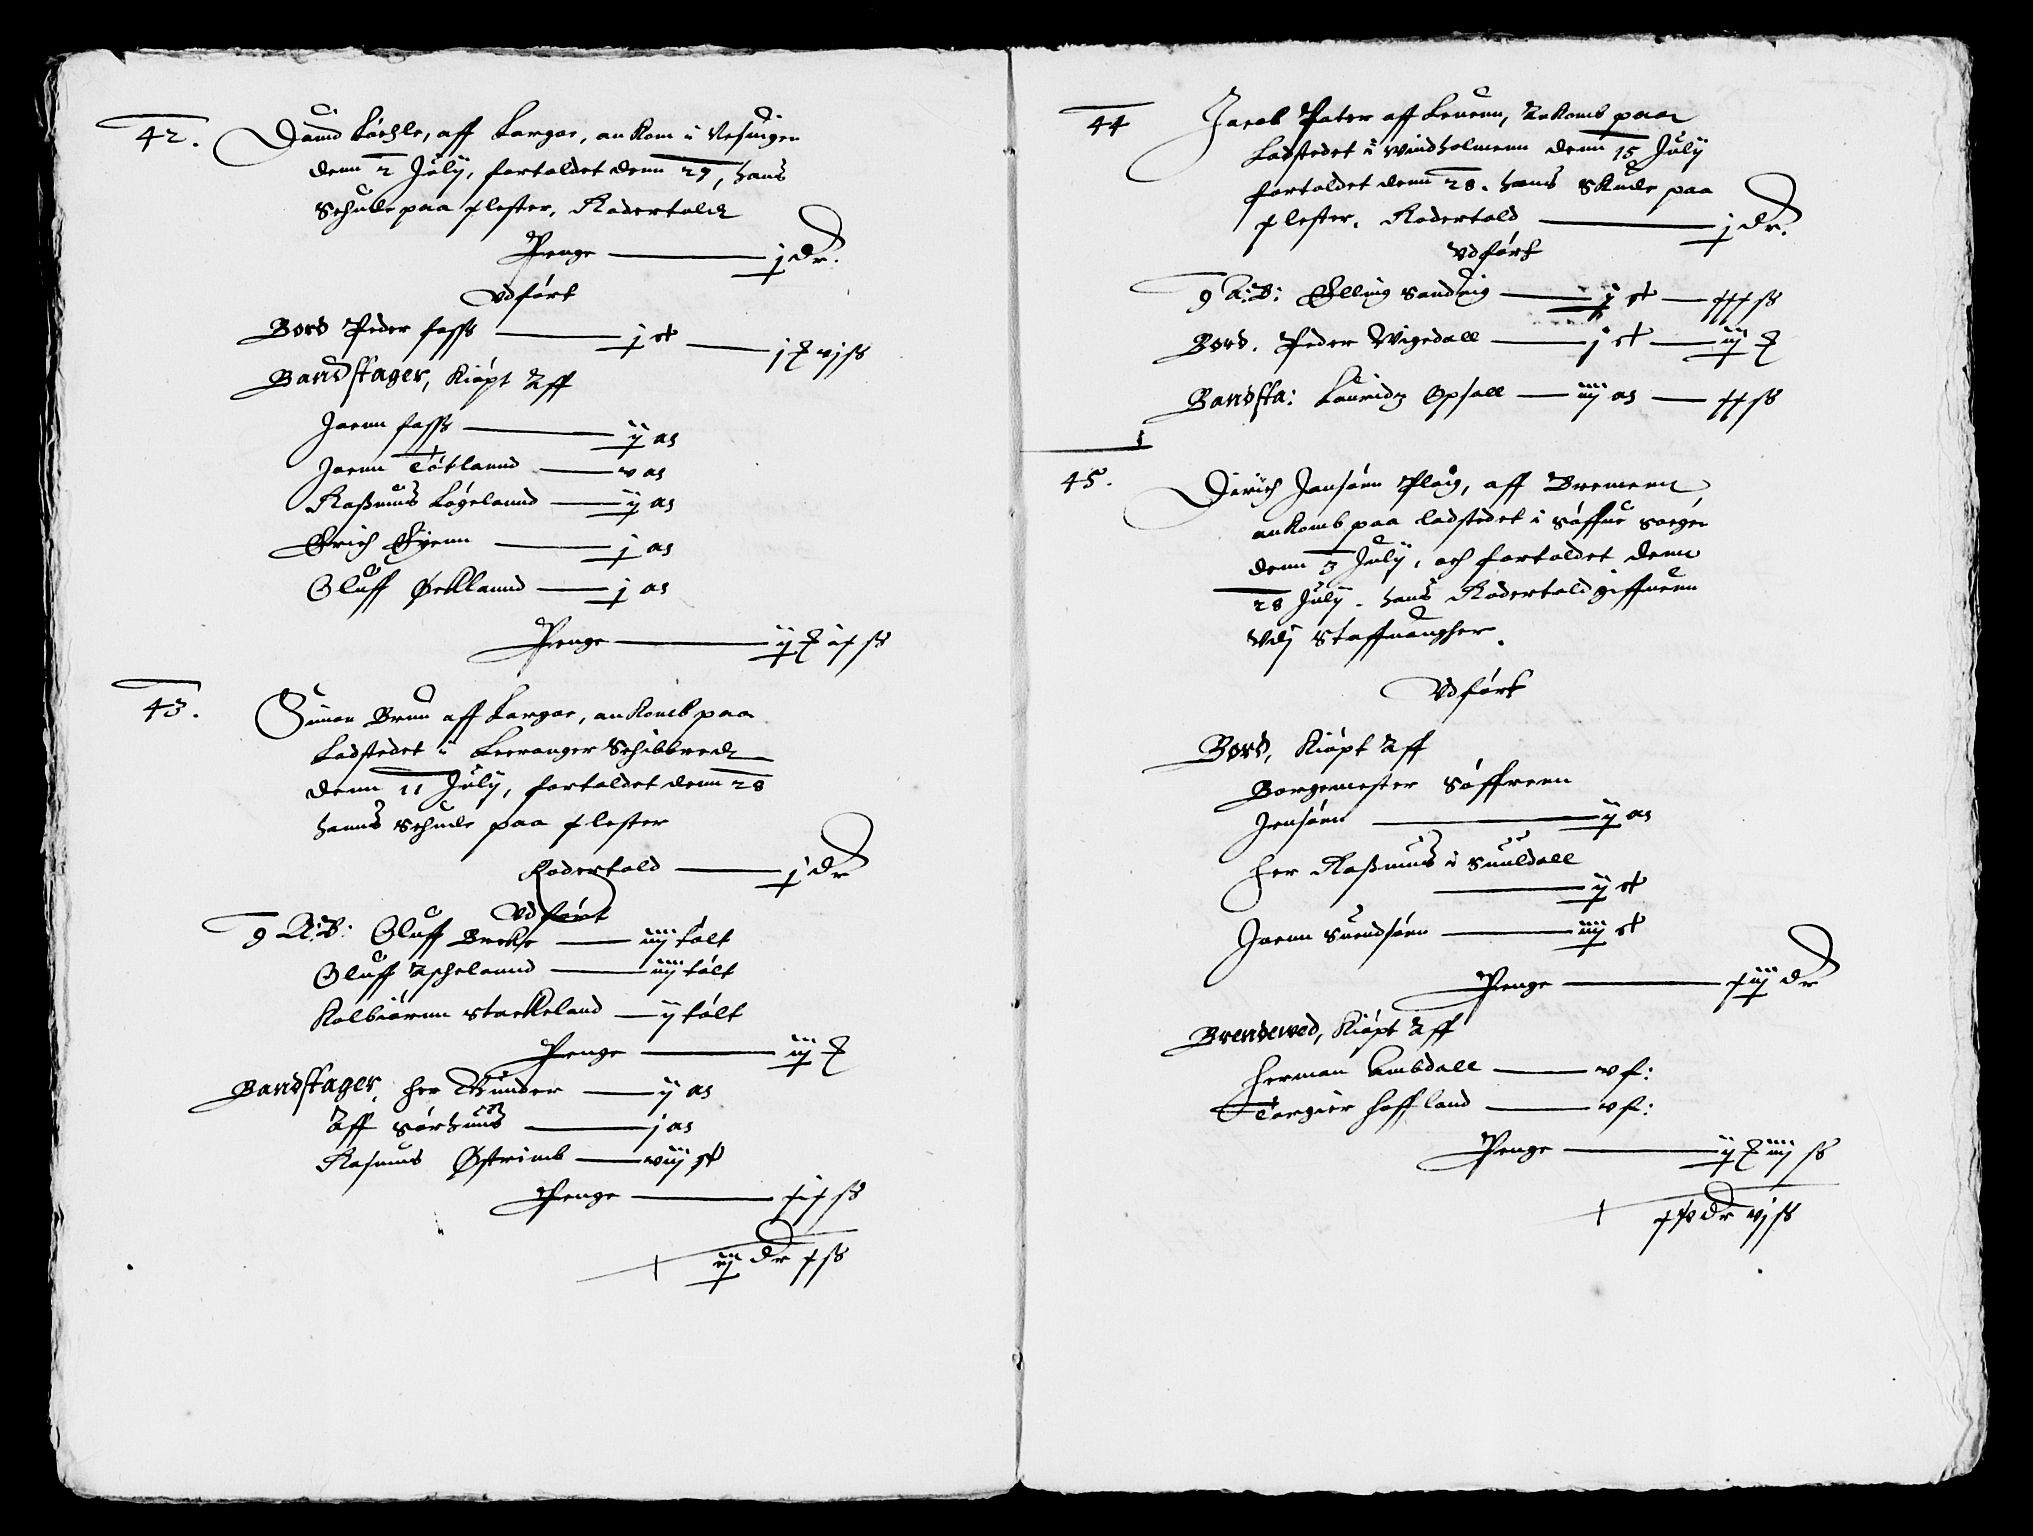 42. Dauid Lochle, aff Largoe, ankom i Nesuigen
denn 2 Julij, fortoldet denn 27, hans
Schude paa x lester, Rodertoldt
Penge j dr.
Vdført
Bord Peder foss j st j ɉ vj ss
Bandstager, kiøpt Aff
Joenn foss ij as
Joenn Totlannd v as
Rassmus Løgelannd ij as
Erich Gyenn j as
Oluff Øcklannd j as
Penge ij ɉ ix ss
43. Simon Brun aff Largoe, ankomb paa
Ladstedet i Leeranger Schibbredt
denn 11 Julij, fortoldet denn 28
Hanns Schude paa x lester
Rodertold j dr
Vdført
9 A:B: Oluff Brekke iiij tolt
Oluff Aschelannd iiij tolt
Kolbiørnn Stackeland ij tolt
Penge iij ɉ
Bandstager, her Gunder ij as
Aff Sørhuus j as
Rasmus Østrimb viij st
Penge xix ss
iij dr x ss
44 Jacob Pater aff Leuenn, Ankomb paa
Ladstedet i Windholmenn denn 15 July
fortoldet denn 28. hans Skude paa
x lester. Rodertold j dr.
Vdført
9 A:B: Elling Sanduig j st xxx ss
Bord. Peder Wigedall j st iij ɉ
Bandsta: Lauridtz Opsall iiij as xx ss
45. Dirich Jansønn Ploug, aff Bremenn,
ankomb paa ladstedet i Søffue Soegen
denn 3 Julij, och fortoldet denn
28 Julij. hans Rodertold giffuenn
Vdj Staffuangher.
Vdført
Bord, kiøpt Aff
Borgemester Søffrenn
Jensønn ij as
Her Rassmus i Suuldall
ij st
Joenn Suendsønn iiij st
Penge xiij dr
Brendewed, kiøpt Aff
Herman Ambdall v f:
Torgier Hoffland v f:
Penge ij ɉ iiij ss
xv dr vj ss